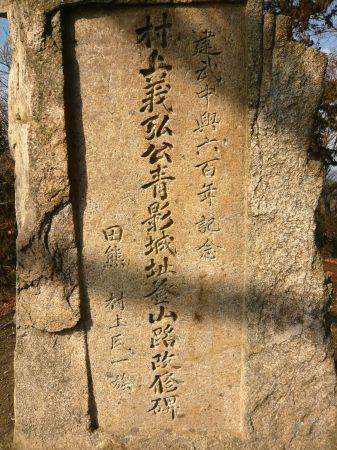 建武中興六百年記念
村上義弘公青影城址登山路改修碑
田熊 村上民一族